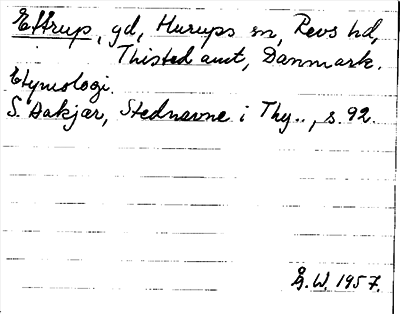 Eftrup, gd, Hurups sn, Revs hd,
Thisted amt, Danmark.
Etymologi.
S. Aakjær, Stednavne i Thy.., s. 92.
G. W. 1957.